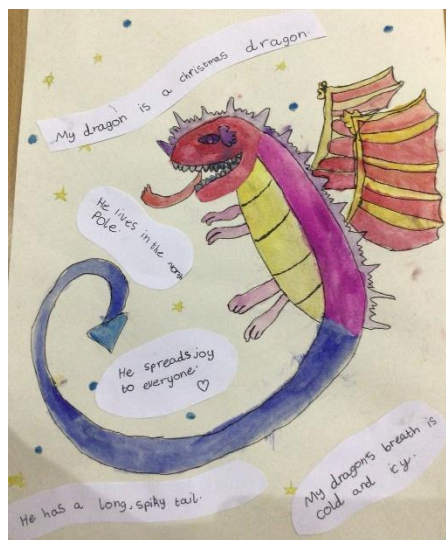 My dragon is a christmas dragon.
He lives in the
north
POLE.
He spreads joy
to everyone.
He has a long, spiky tail.
My dragons breath is
cold and icy.